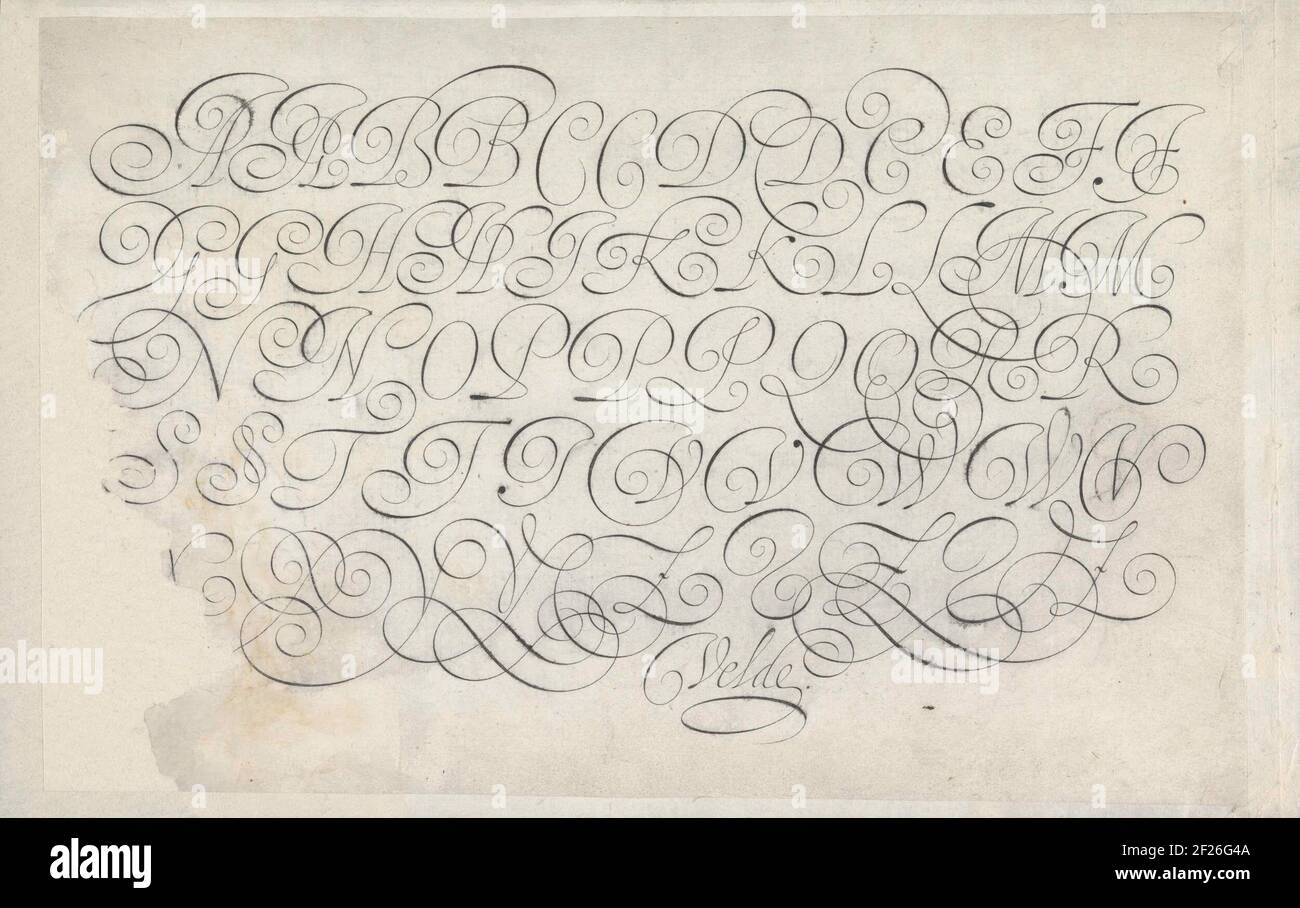 A A B B C C D D E E F F
G G H H I K K L L M M
N N O P P P Q Q R R
S S T T T V V W W
Z Z
Velde.
alamy
Image ID: 2F26G4A
www.alamy.com